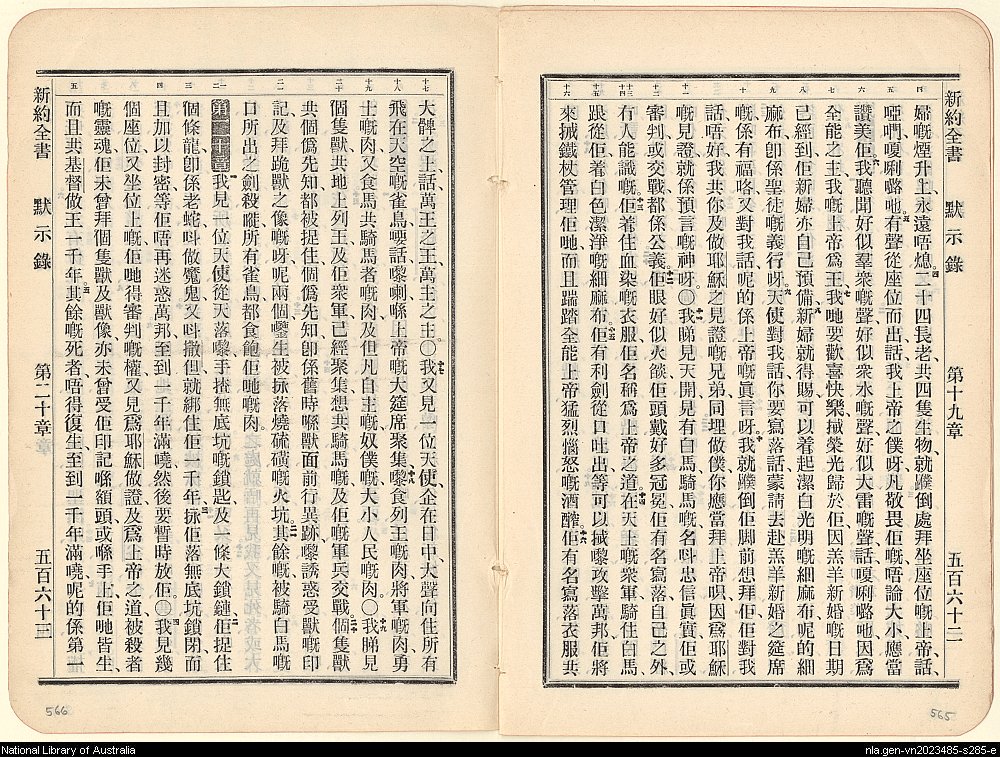 新約全書 默示錄 第十九章 五百六十二
四 五 六 七 八 九 十 十一 十二 十三 十四 十五 十六
婦嘅煙升上、永遠唔熄、二十四長老共四隻生物、就躀倒處拜坐座位嘅上帝話、
啞們嗄唎嚧吔、有聲從座位而出話、我上帝之僕呀、凡敬畏佢嘅唔論大小、應當
讚美佢、我聽聞好似羣衆嘅聲、好似衆水嘅聲、好似大雷嘅聲、話嗄唎嚧吔、因爲
全能之主、我嘅上帝爲王、我哋要歡喜快樂、揻榮光歸於佢、因羔羊新婚嘅日期
已經到、佢新婦亦自己預備、新婦就得賜可以着起潔白光明嘅細麻布、呢的細
麻布、卽係聖徒嘅義行呀、天使對我話、你要寫落話、蒙請去赴羔羊新婚之筵席
嘅係有福咯、又對我話、呢的係上帝嘅眞言呀、我就躀倒佢脚前想拜佢、佢對我
話、唔好、我共你及做耶穌之見證嘅兄弟、同埋做僕、你應當拜上帝呮、因爲耶穌
嘅見證、就係預言嘅神呀、〇我睇見天開、見有白馬、騎馬嘅名呌忠信眞實、佢或
審判或交戰、都係公義、佢眼好似火燄、佢頭戴好多冠冕、佢有名寫落、自己之外、
有人能識嘅、佢着住血染嘅衣服、佢名稱爲上帝之道、在天上嘅衆軍騎住白馬、
跟從佢、着白色潔淨嘅細麻布、佢有利劍從口吐出等可以揻嚟攻擊萬邦、佢將
來揻鐵杖管理佢哋、而且踹踏全能上帝猛烈惱怒嘅酒醡、佢有名寫落衣服共
565
十七 十八 十九 二十 二一 一 二 三 四 五
大髀之上、話萬王之王、萬主之主。〇我又見一位天使、企在日中、大聲向住所有
飛在天空嘅雀鳥嘡話、嚟喇、喺上帝嘅大筵席聚集、嚟食列王嘅肉、將軍嘅肉、勇
士嘅肉、又食馬共騎馬者嘅肉、及但凡自主嘅、奴僕嘅、大小人民嘅肉、〇我睇見
個隻獸共地上列王、及佢衆軍、已經聚集、想共騎馬嘅及佢嘅軍兵交戰、個隻獸
共個僞先知、都被捉住、個僞先知、卽係舊時喺獸面前行異跡、嚟誘惑受獸嘅印
記、及拜跪獸之像嘅呀、呢兩個嚟生被抹落燒硫磺嘅火坑、其餘嘅、被騎白馬嘅
口所出之劍殺嚨、所有雀鳥、都食飽佢哋嘅肉。
第二十章 我見一位天使從天落嚟、手揸無底坑嘅鎖匙、及一條大鎖鏈、佢捉住
個條龍、卽係老蛇、呌做魔鬼、又呌撒但、就綁住佢一千年、抹佢落無底坑鎖閉、而
且加以封密、等佢唔再迷惑萬邦、至到一千年滿嘵、然後要暫時放佢〇我見幾
個座位、又坐位上嘅、佢哋得審判嘅權、又見爲耶穌做證、及爲上帝之道被殺者
嘅靈魂、佢未曾拜個隻獸及獸像、亦未曾受佢印記喺額頭、或喺手上、佢哋皆生、
而且共基督做王一千年、其餘嘅死者、唔得復生、至到一千年滿嘵、呢的係第一
新約全書 默示錄 第二十章 五百六十三
566
National Library of Australia
nla.gen-vn2023485-s285-e